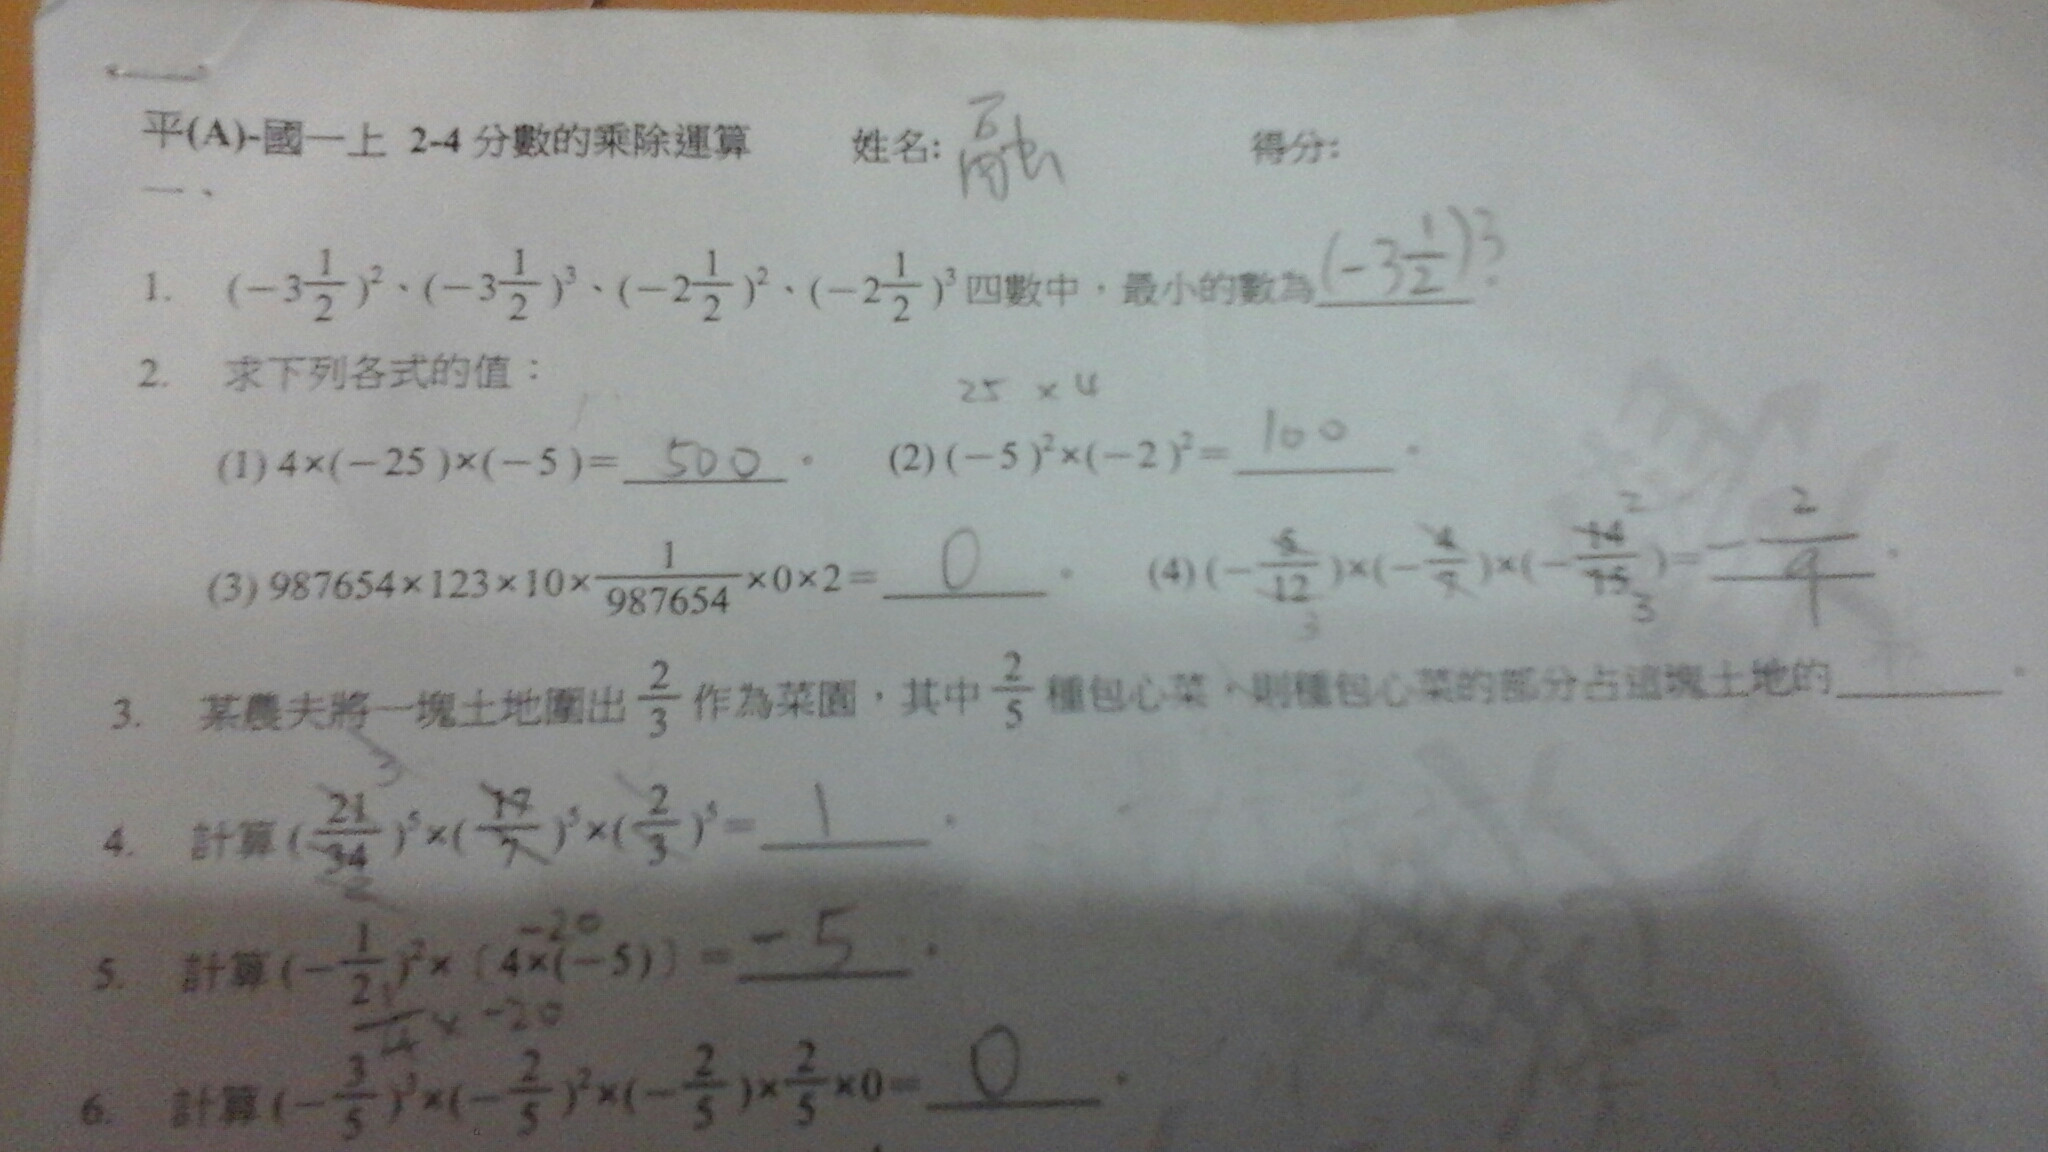 平(A)-國一上 2-4 分數的乘除運算 姓名: 融 得分:
一、
1. (-3 1/2)²、(-3 1/2)³、(-2 1/2)²、(-2 1/2)³ 四數中，最小的數為 (-3 1/2)³。
2. 求下列各式的值：
25 × 4
(1) 4×(-25)×(-5)= 500 。 (2) (-5)²×(-2)²= 100 。
(3) 987654×123×10×1/987654×0×2= 0 。 (4) (-5/12)×(-4/7)×(-14/15)= -2/9 。
2
3 3
3. 某農夫將一塊土地圍出 2/3 作為菜園，其中 2/5 種包心菜，則種包心菜的部分占這塊土地的 。
3
4. 計算 (21/34)⁵×(17/7)⁵×(2/3)⁵= 1 。
2
-20
5. 計算 (-1/2)²×〔4×(-5)〕= -5 。
1/4 × -20
6. 計算 (-3/5)³×(-2/5)²×(-2/5)×2/5×0= 0 。